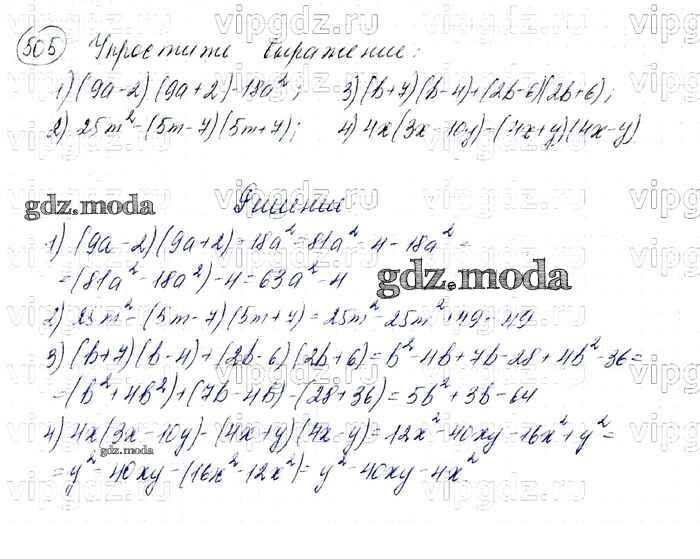 505 Упростите выражение:
1) (9a-2)(9a+2)-18a²; 3) (b+7)(b-4)+(2b-6)(2b+6);
2) 25m²-(5m-7)(5m+7); 4) 4x(3x-10y)-(4x+y)(4x-y)
gdz.moda
Решение
1) (9a-2)(9a+2)-18a²=81a²-4-18a²=
=(81a²-18a²)-4=63a²-4
gdz.moda
2) 25m²-(5m-7)(5m+7)=25m²-25m²+49=49
3) (b+7)(b-4)+(2b-6)(2b+6)=b²-4b+7b-28+4b²-36=
=(b²+4b²)+(7b-4b)-(28+36)=5b²+3b-64
4) 4x(3x-10y)-(4x+y)(4x-y)=12x²-40xy-16x²+y²=
gdz.moda
=y²-40xy-(16x²-12x²)=y²-40xy-4x².
vipgdz.ru